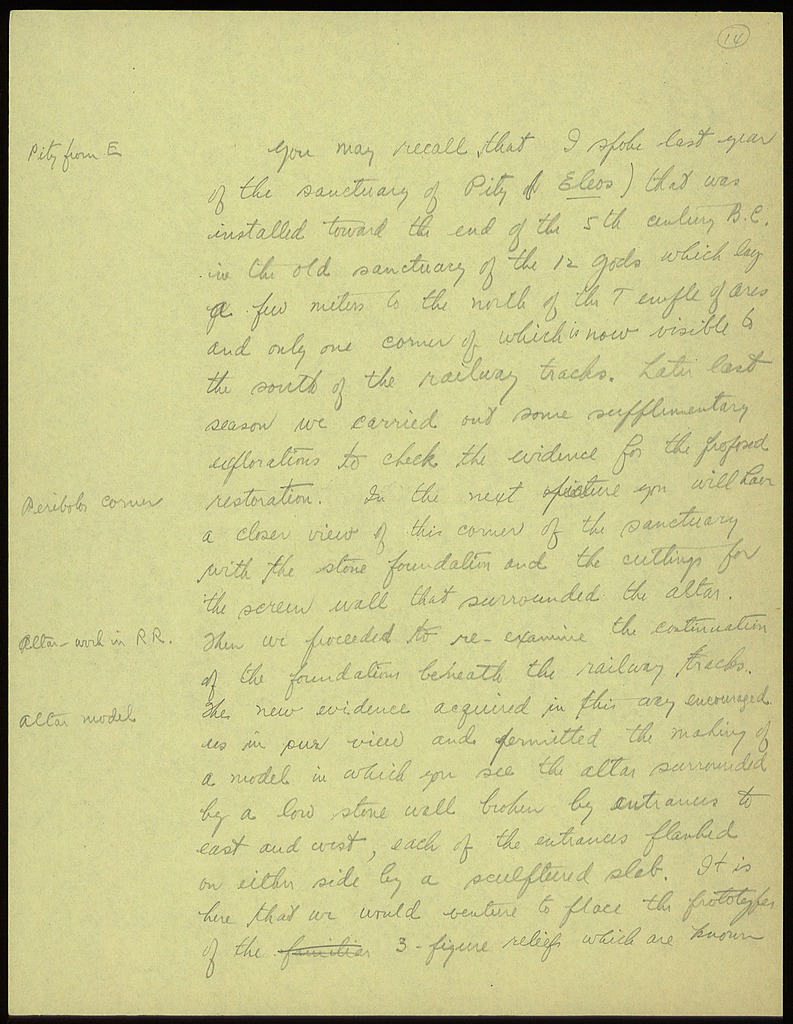 14
Pity from E
You may recall that I spoke last year
of the sanctuary of Pity ( Eleos) that was
installed toward the end of the 5th century B.C.
in the old sanctuary of the 12 gods which lay
a few meters to the north of the Temple of Ares
and only one corner of which is now visible to
the south of the railway tracks. Later last
season we carried out some supplimentary
explorations to check the evidence for the proposed
Peribolos corner
restoration. In the next picture you will have
a closer view of this corner of the sanctuary
with the stone foundation and the cuttings for
the screen wall that surrounded the altar.
Altar - work in R.R.
Then we proceeded to re-examine the continuation
of the foundations beneath the railway tracks.
Altar model
The new evidence acquired in this way encouraged
us in our view and permitted the making of
a model in which you see the altar surrounded
by a low stone wall broken by entrances to
east and west, each of the entrances flanked
on either side by a sculptured slab. It is
here that we would venture to place the prototypes
of the familiar 3-figure reliefs which are known